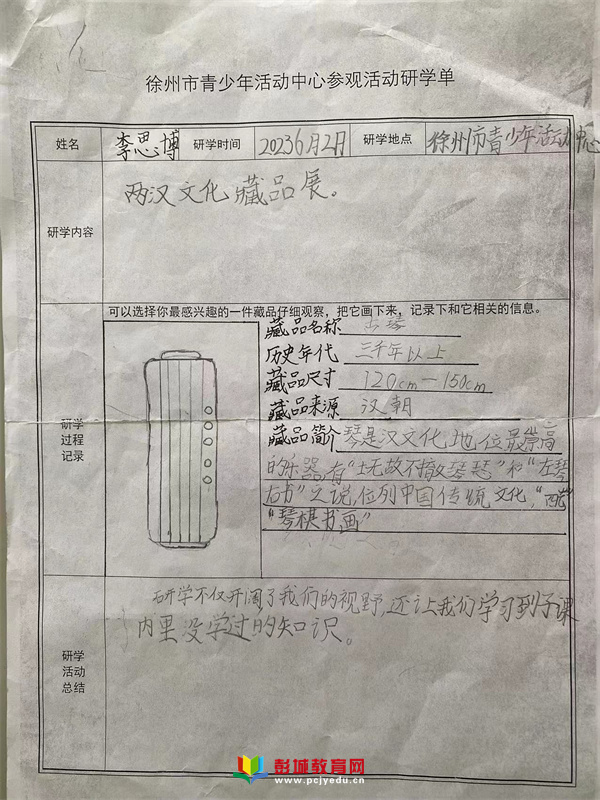 徐州市青少年活动中心参观活动研学单
姓名 李思博 研学时间 20236月2月 研学地点 徐州市青少年活动中心
研学内容 两汉文化藏品展。
可以选择你最感兴趣的一件藏品仔细观察，把它画下来，记录下和它相关的信息。
研学
过程
记录
藏品名称 古琴
历史年代 三千年以上
藏品尺寸 120cm—150cm
藏品来源 汉朝
藏品简介 琴是汉文化地位最崇高
的乐器,有“士无故不撤琴瑟”和“左琴
右书”之说,位列中国传统文化,“四艺”
“琴棋书画”
研学
活动
总结
研学不仅开阔了我们的视野,还让我们学习到了课
内里没学过的知识。
彭城教育网
www.pcjyedu.cn